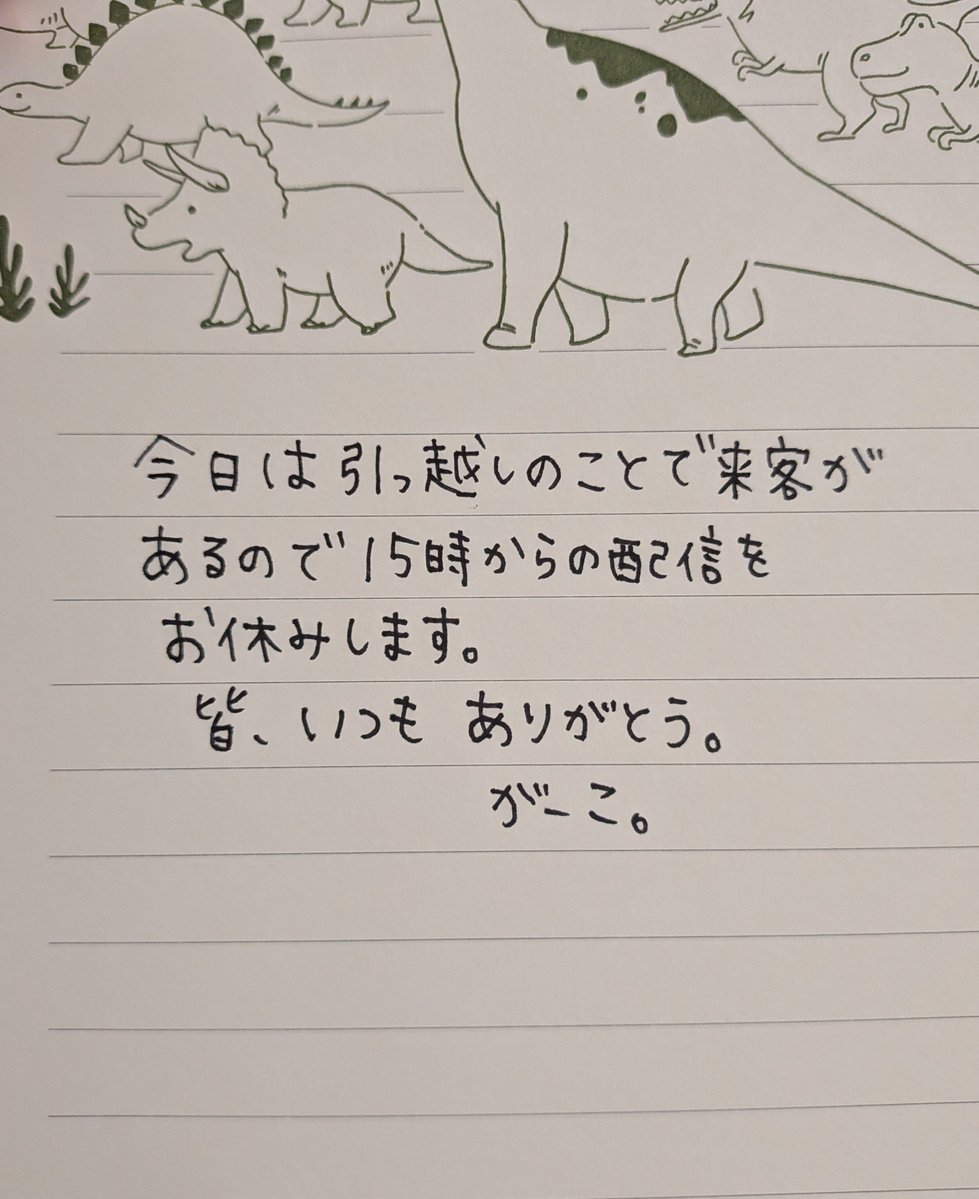 今日は引っ越しのことで来客が
あるので15時からの配信を
お休みします。
皆、いつも ありがとう。
がーこ。